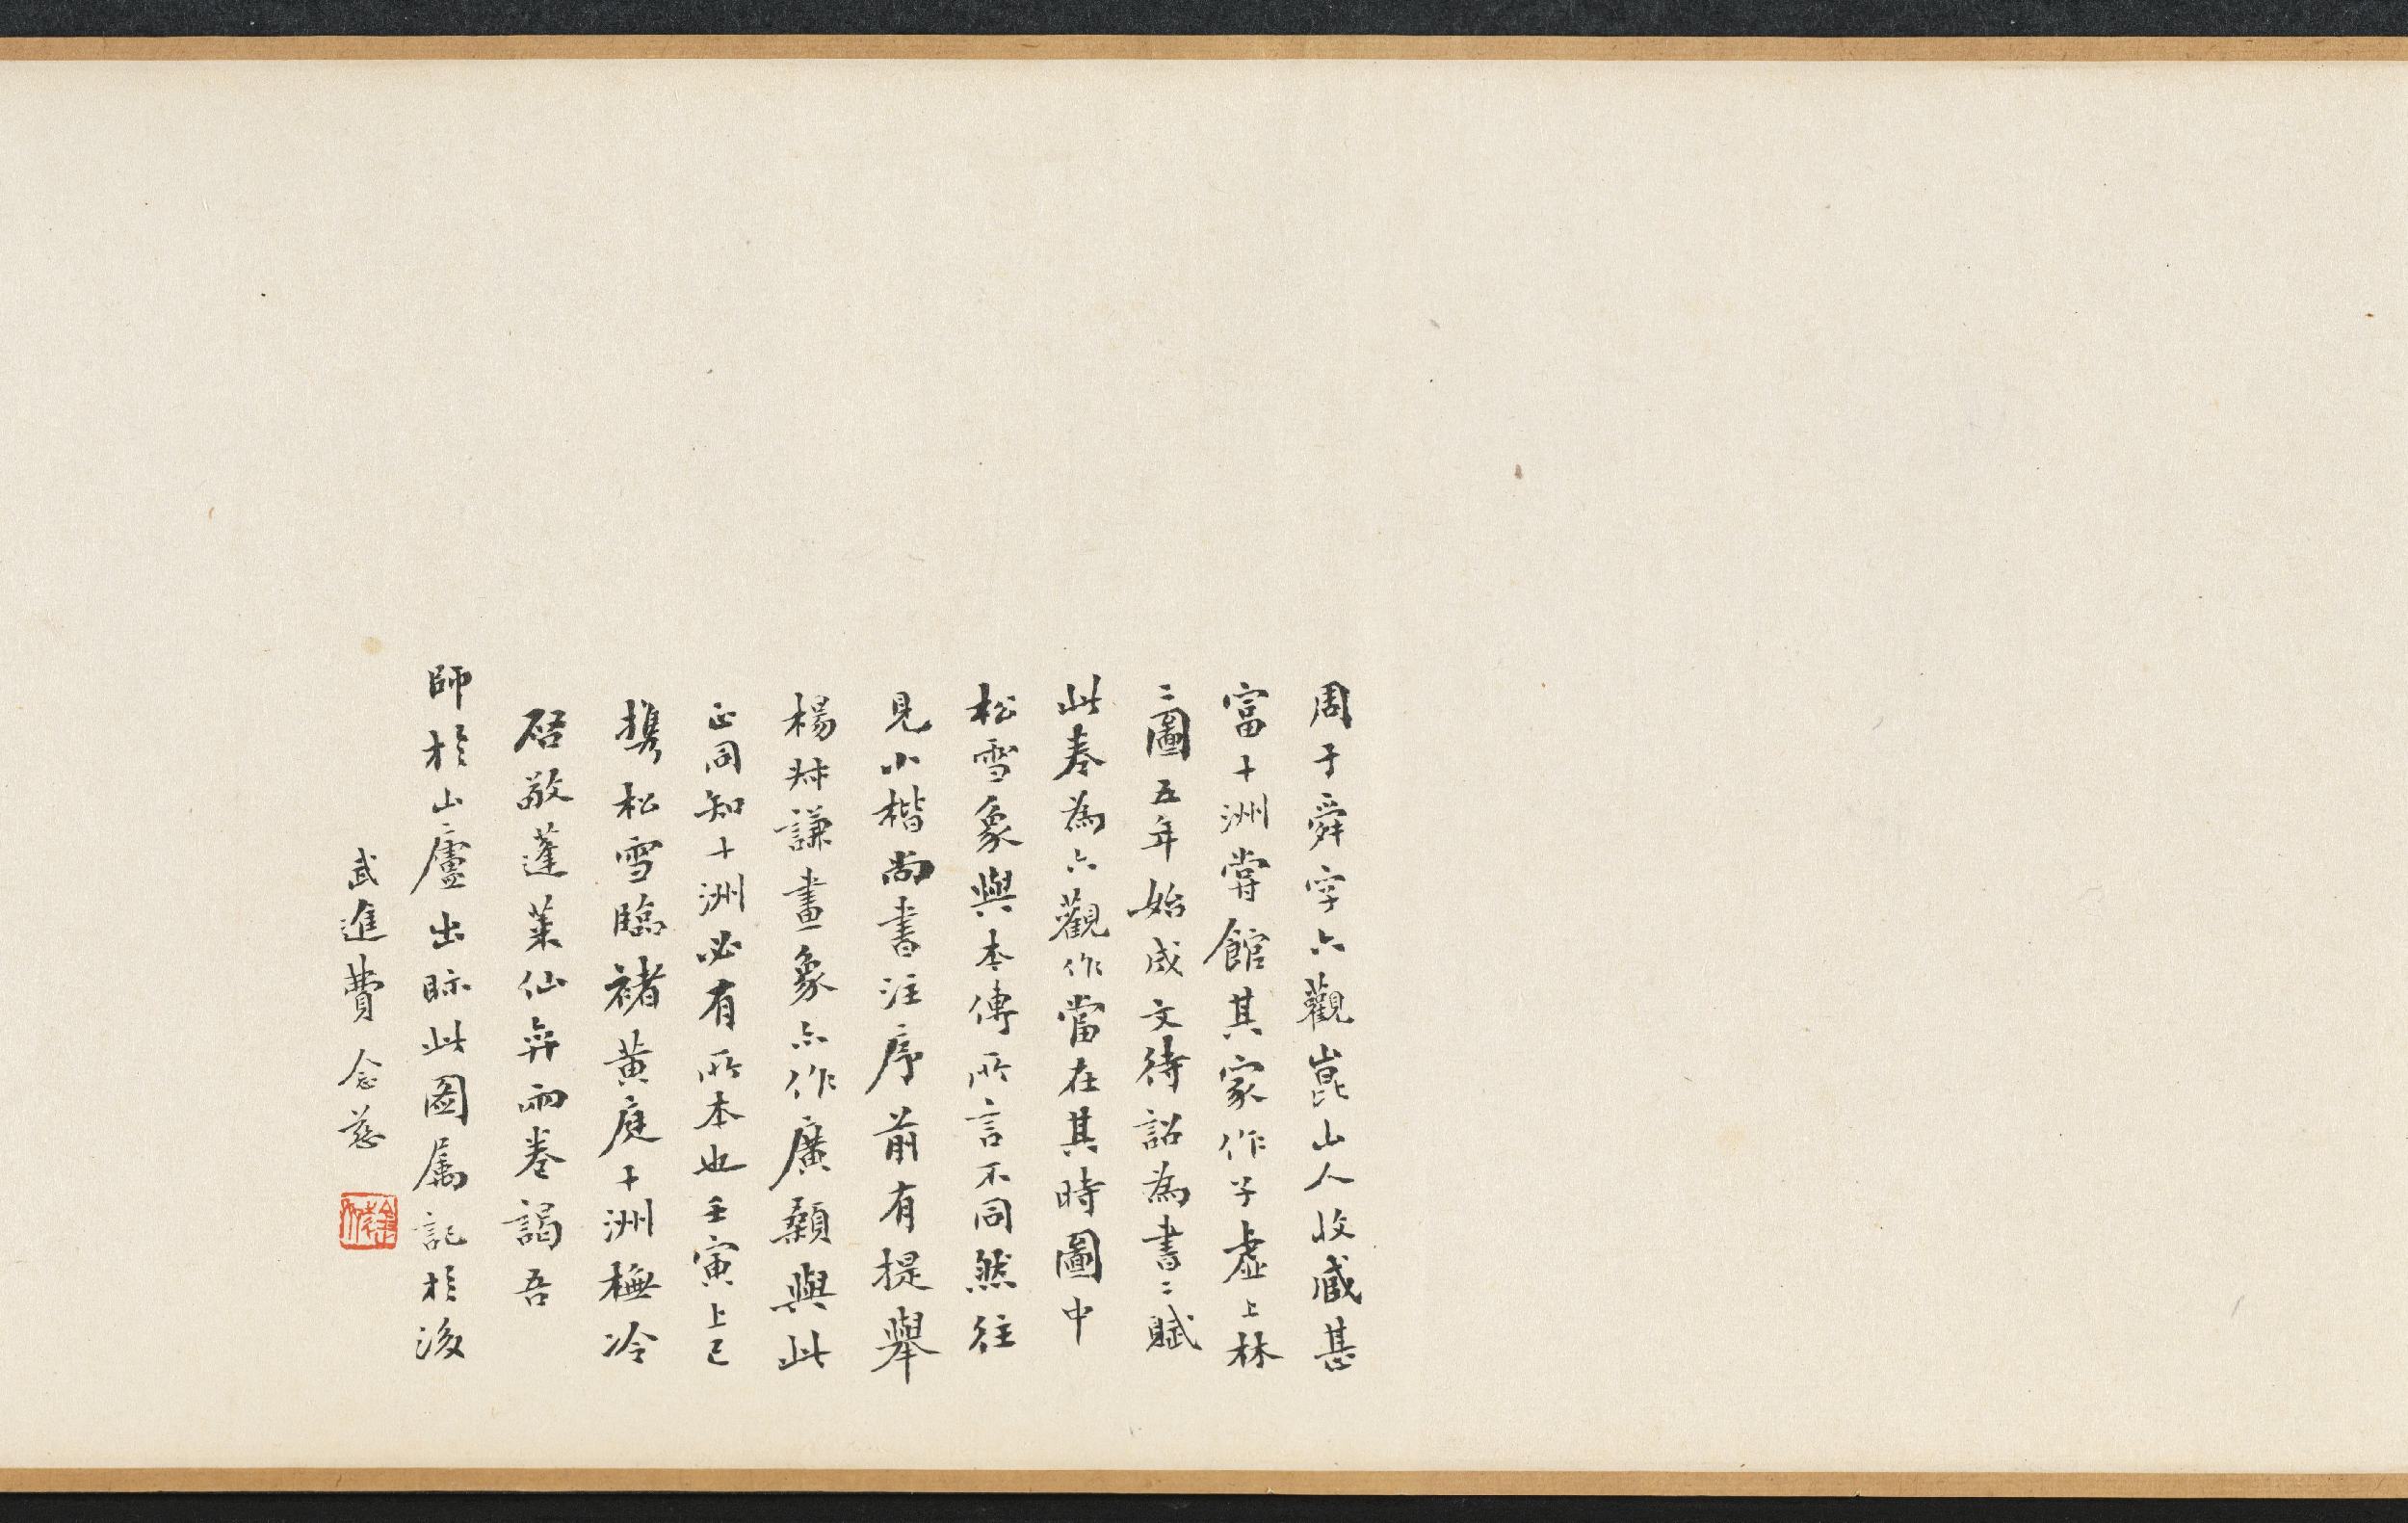 周于舜字六觀崑山人收藏甚
富十洲嘗館其家作子虛上林
二圖五年始成文待詔為書二賦
此奉為六觀作當在其時圖中
松雪象與本傳所言不同然往
見小楷尚書注序前有提舉
楊叔謙畫象亦作廣顙與此
正同知十洲必有所本也壬寅上巳
攜松雪臨褚黃庭十洲橅冷
啓敬蓬萊仙弈兩卷謁吾
師於山廬出眎此圖屬記於後
武進費念慈